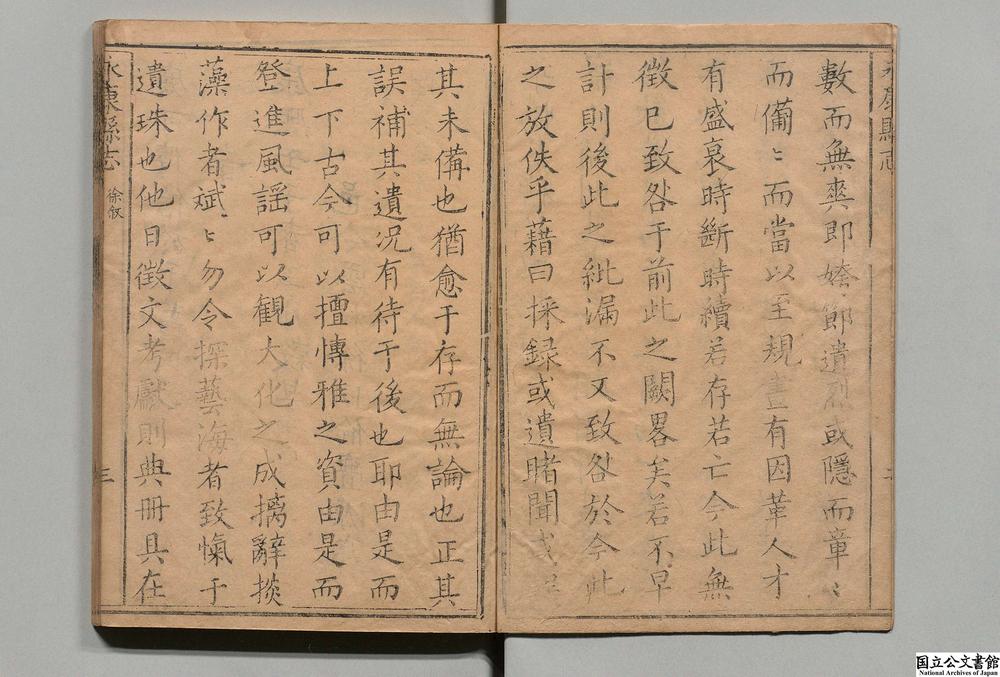 永康縣志
二
數而無爽即婍節遺烈或隱而章〻
而備〻而當以至規畫有因革人才
有盛衰時斷時續若存若亡今此無
徵已致咎于前此之闕畧矣若不早
計則後此之紕漏不又致咎於今此
之放佚乎藉曰採録或遺睹聞或
其未備也猶愈于存而無論也正其
誤補其遺况有待于後也耶由是而
上下古今可以擅愽雅之資由是而
登進風謡可以觀大化之成摛辭掞
藻作者斌〻勿令探藝海者致愾于
遺珠也他日徵文考獻則典冊具在
永康縣志
徐叙
三
国立公文書館
National Archives of Japan